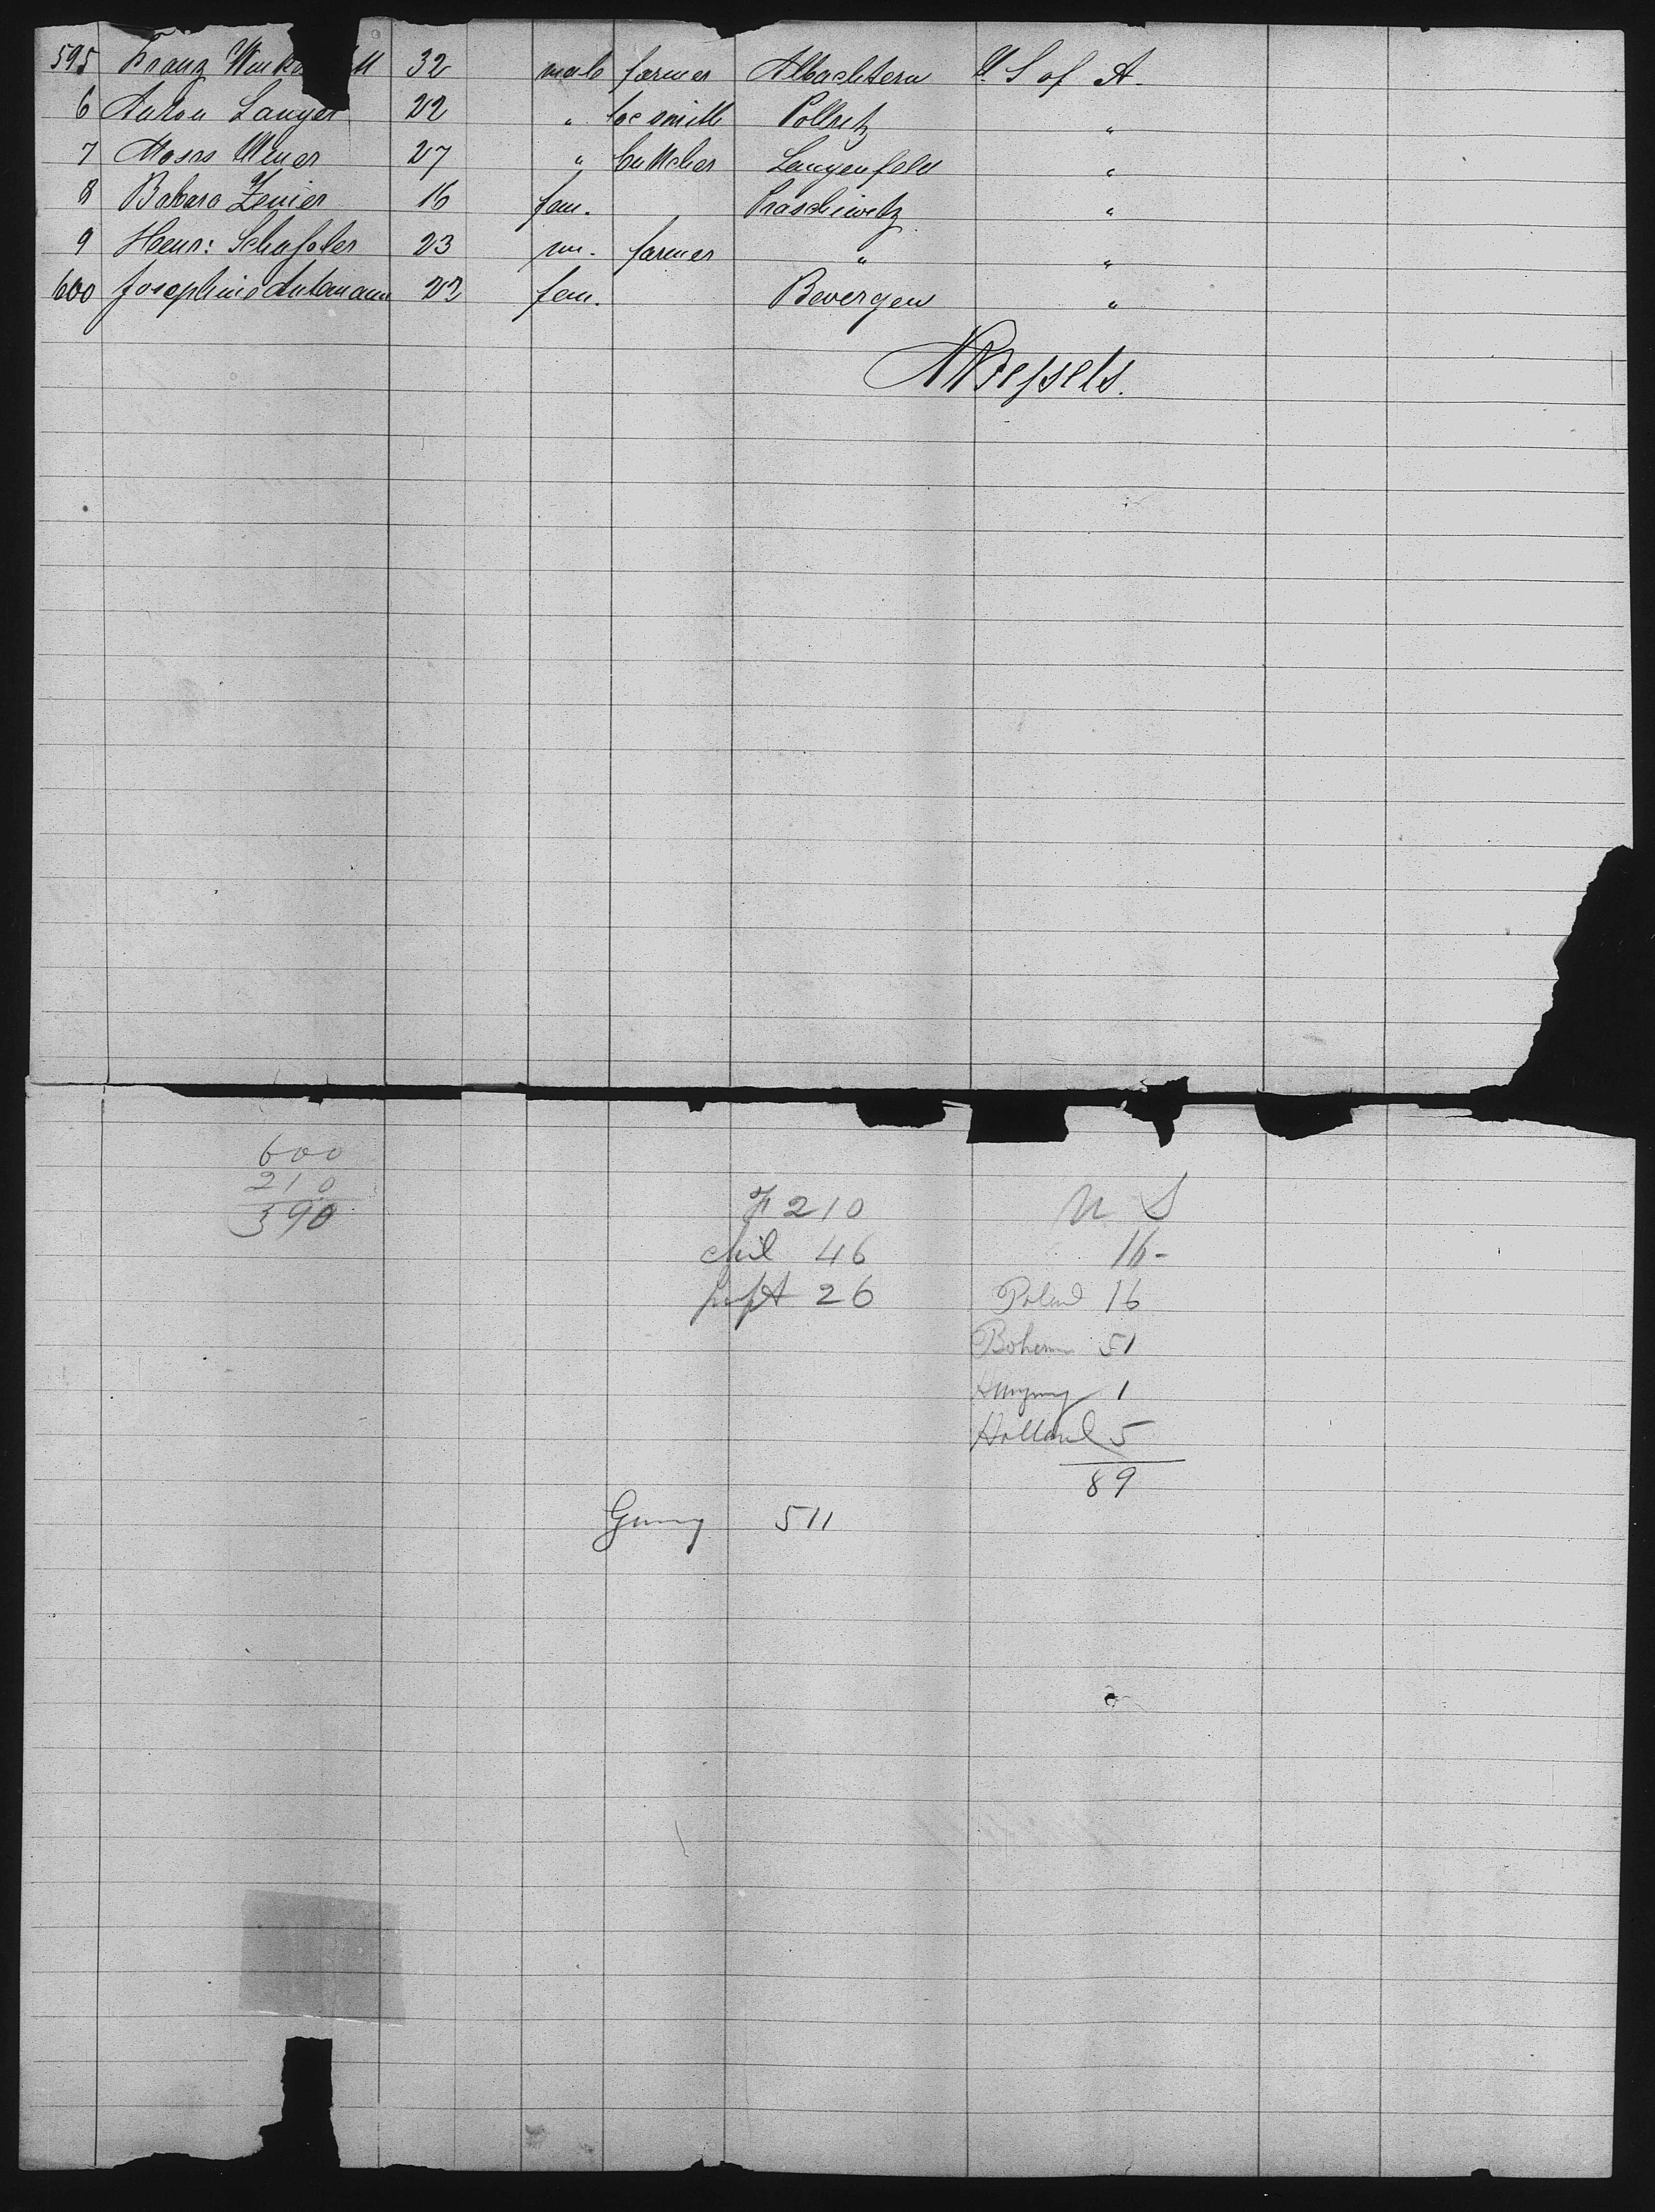 595 Franz 32 male farmer Albachtern U. S of A.
6 Anton Langer 22 " locsmith "
7 Moses 27 " buttcher Langenfeld "
8 Babara Zenier 16 fem. Praschiwitz "
9 Heinr: Schafpler 23 m. farmer " "
600 Josephine 22 fem. Bevergen "
Wessels.
600
210
390
F 210
chil 46
Inft 26
U S
16-
Poland 16
Bohem 51
Hungry 1
Holland 5
89
Gmny 511